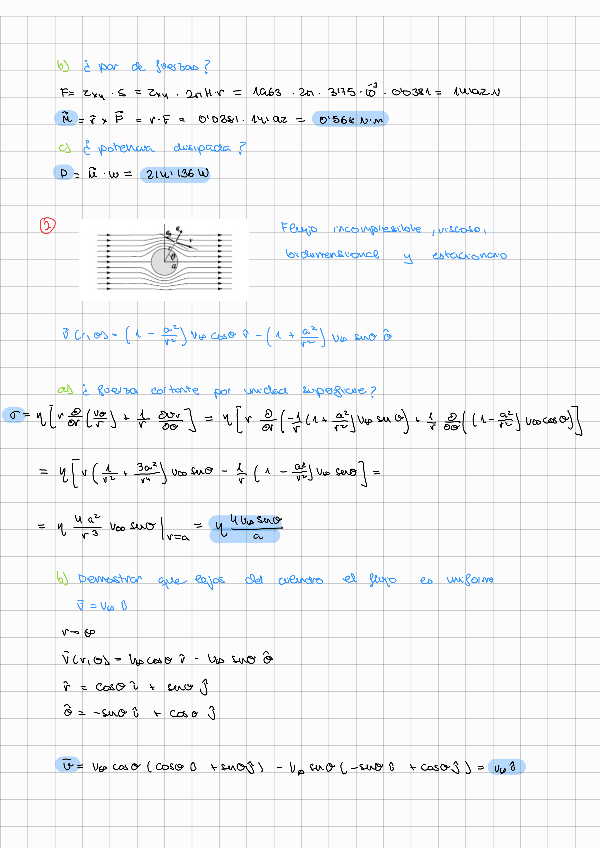 b) ¿ par de fuerzas?
F = τxy · S = τxy · 2πH·r = 1963 · 2π · 3'175 · 10⁻³ · 0'0381 = 14'92 N
M⃗ = r⃗ x F⃗ = r·F = 0'0381 · 14'92 = 0'568 N·m
c) ¿ potencia disipada?
P = M⃗ · w = 214'136 W
2
θ
a
r
Flujo incompresible, viscoso,
bidimensional y estacionario
v⃗(r,θ) = (1 - a²/r²) v∞ cosθ r̂ - (1 + a²/r²) v∞ senθ θ̂
a) ¿ fuerza cortante por unidad superficie?
σ = η [r ∂/∂r (vθ/r) + 1/r ∂vr/∂θ] = η [r ∂/∂r (-1/r (1 + a²/r²) v∞ senθ) + 1/r ∂/∂θ ((1 - a²/r²) v∞ cosθ)]
= η [r (1/r² + 3a²/r⁴) v∞ senθ - 1/r (1 - a²/r²) v∞ senθ] =
= η 4a²/r³ v∞ senθ |r=a = η 4v∞ senθ/a
b) Demostrar que lejos del cilindro el flujo es uniforme
v⃗ = v∞ î
r→∞
v⃗(r,θ) = v∞ cosθ r̂ - v∞ senθ θ̂
r̂ = cosθ î + senθ ĵ
θ̂ = -senθ î + cosθ ĵ
v⃗ = v∞ cosθ (cosθ î + senθ ĵ) - v∞ senθ (-senθ î + cosθ ĵ) = v∞ î